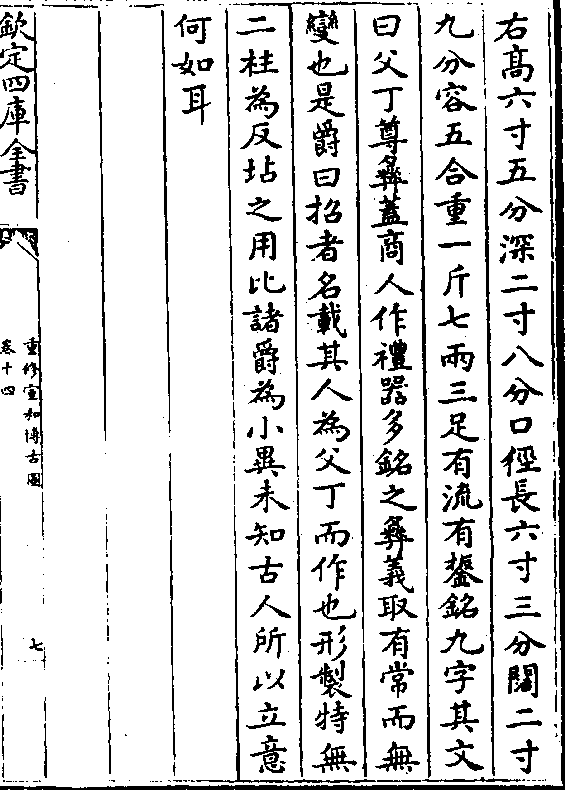 右髙六寸五分深二寸八分口徑長六寸三分闊二寸
九分容五合重一斤七兩三足有流有鋬銘九字其文
曰父丁尊彝蓋商人作禮器多銘之彝義取有常而無
變也是爵曰招者名載其人為父丁而作也形製特無
二柱為反坫之用比諸爵為小異未知古人所以立意
何如耳
欽定四庫全書
重修宣和博古圖
卷十四
七